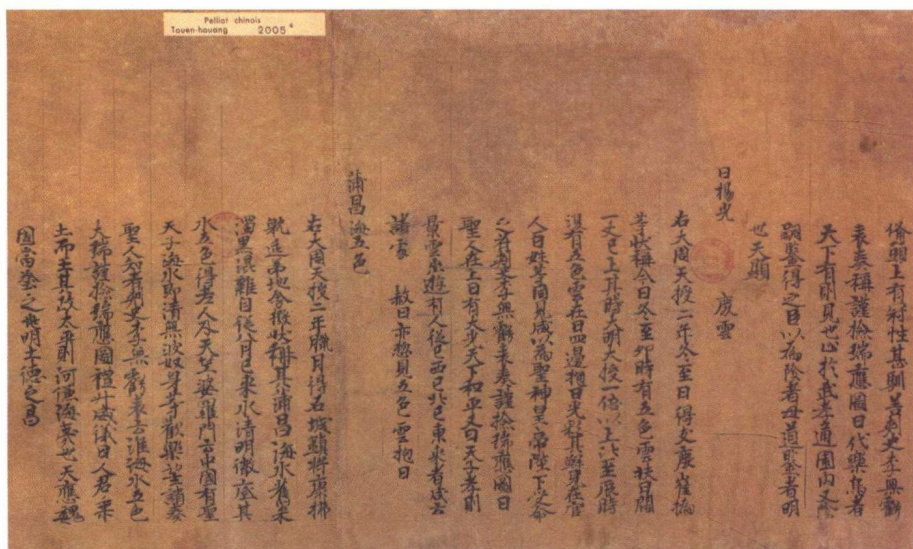 Pelliot chinois
Touen-houang 2005 4
脩頸上有性甚馴善刺史李無虧
表奏稱謹撿瑞應圖曰代樂鳥者
天下有則見也止於武孝通園內又陰
嗣鑒得之臣以為陰者母道鑒者明
也天顯
日揚光 慶雲
右大周天授二年冬至日得支慶崔撝
等狀稱今日冬至卯時有五色雲扶日闊
一丈已上其時大明大授一倍以上比至辰時
復有五色雲在日四邊抱日光彩甚鮮見在官
人百姓等同見咸以為聖神皇帝陛下受命
之符刺史李無虧表奏謹撿瑞應圖曰
聖人在上日有大光天下和平又曰天子孝則
景雲出遊有人從已西已北已東來者咸云
諸處赦日亦惣見五色雲抱日
蒲昌海五色
右大周天授二年臘月得石城鎮將康拂
耽延弟地舍撥狀稱其蒲昌海水舊來
濁黑混雜自從八月已來水清明徹底其
水五色得老人及天竺婆羅門云中國有聖
天子海水即清無波奴身等歡樂望請奏
聖人知者刺史李無虧表云淮海水五色
大瑞謹撿瑞應圖禮升威儀曰人君乘
土而王其政太平則河傃海夷也天應魏
國當塗之兆明土德之昌